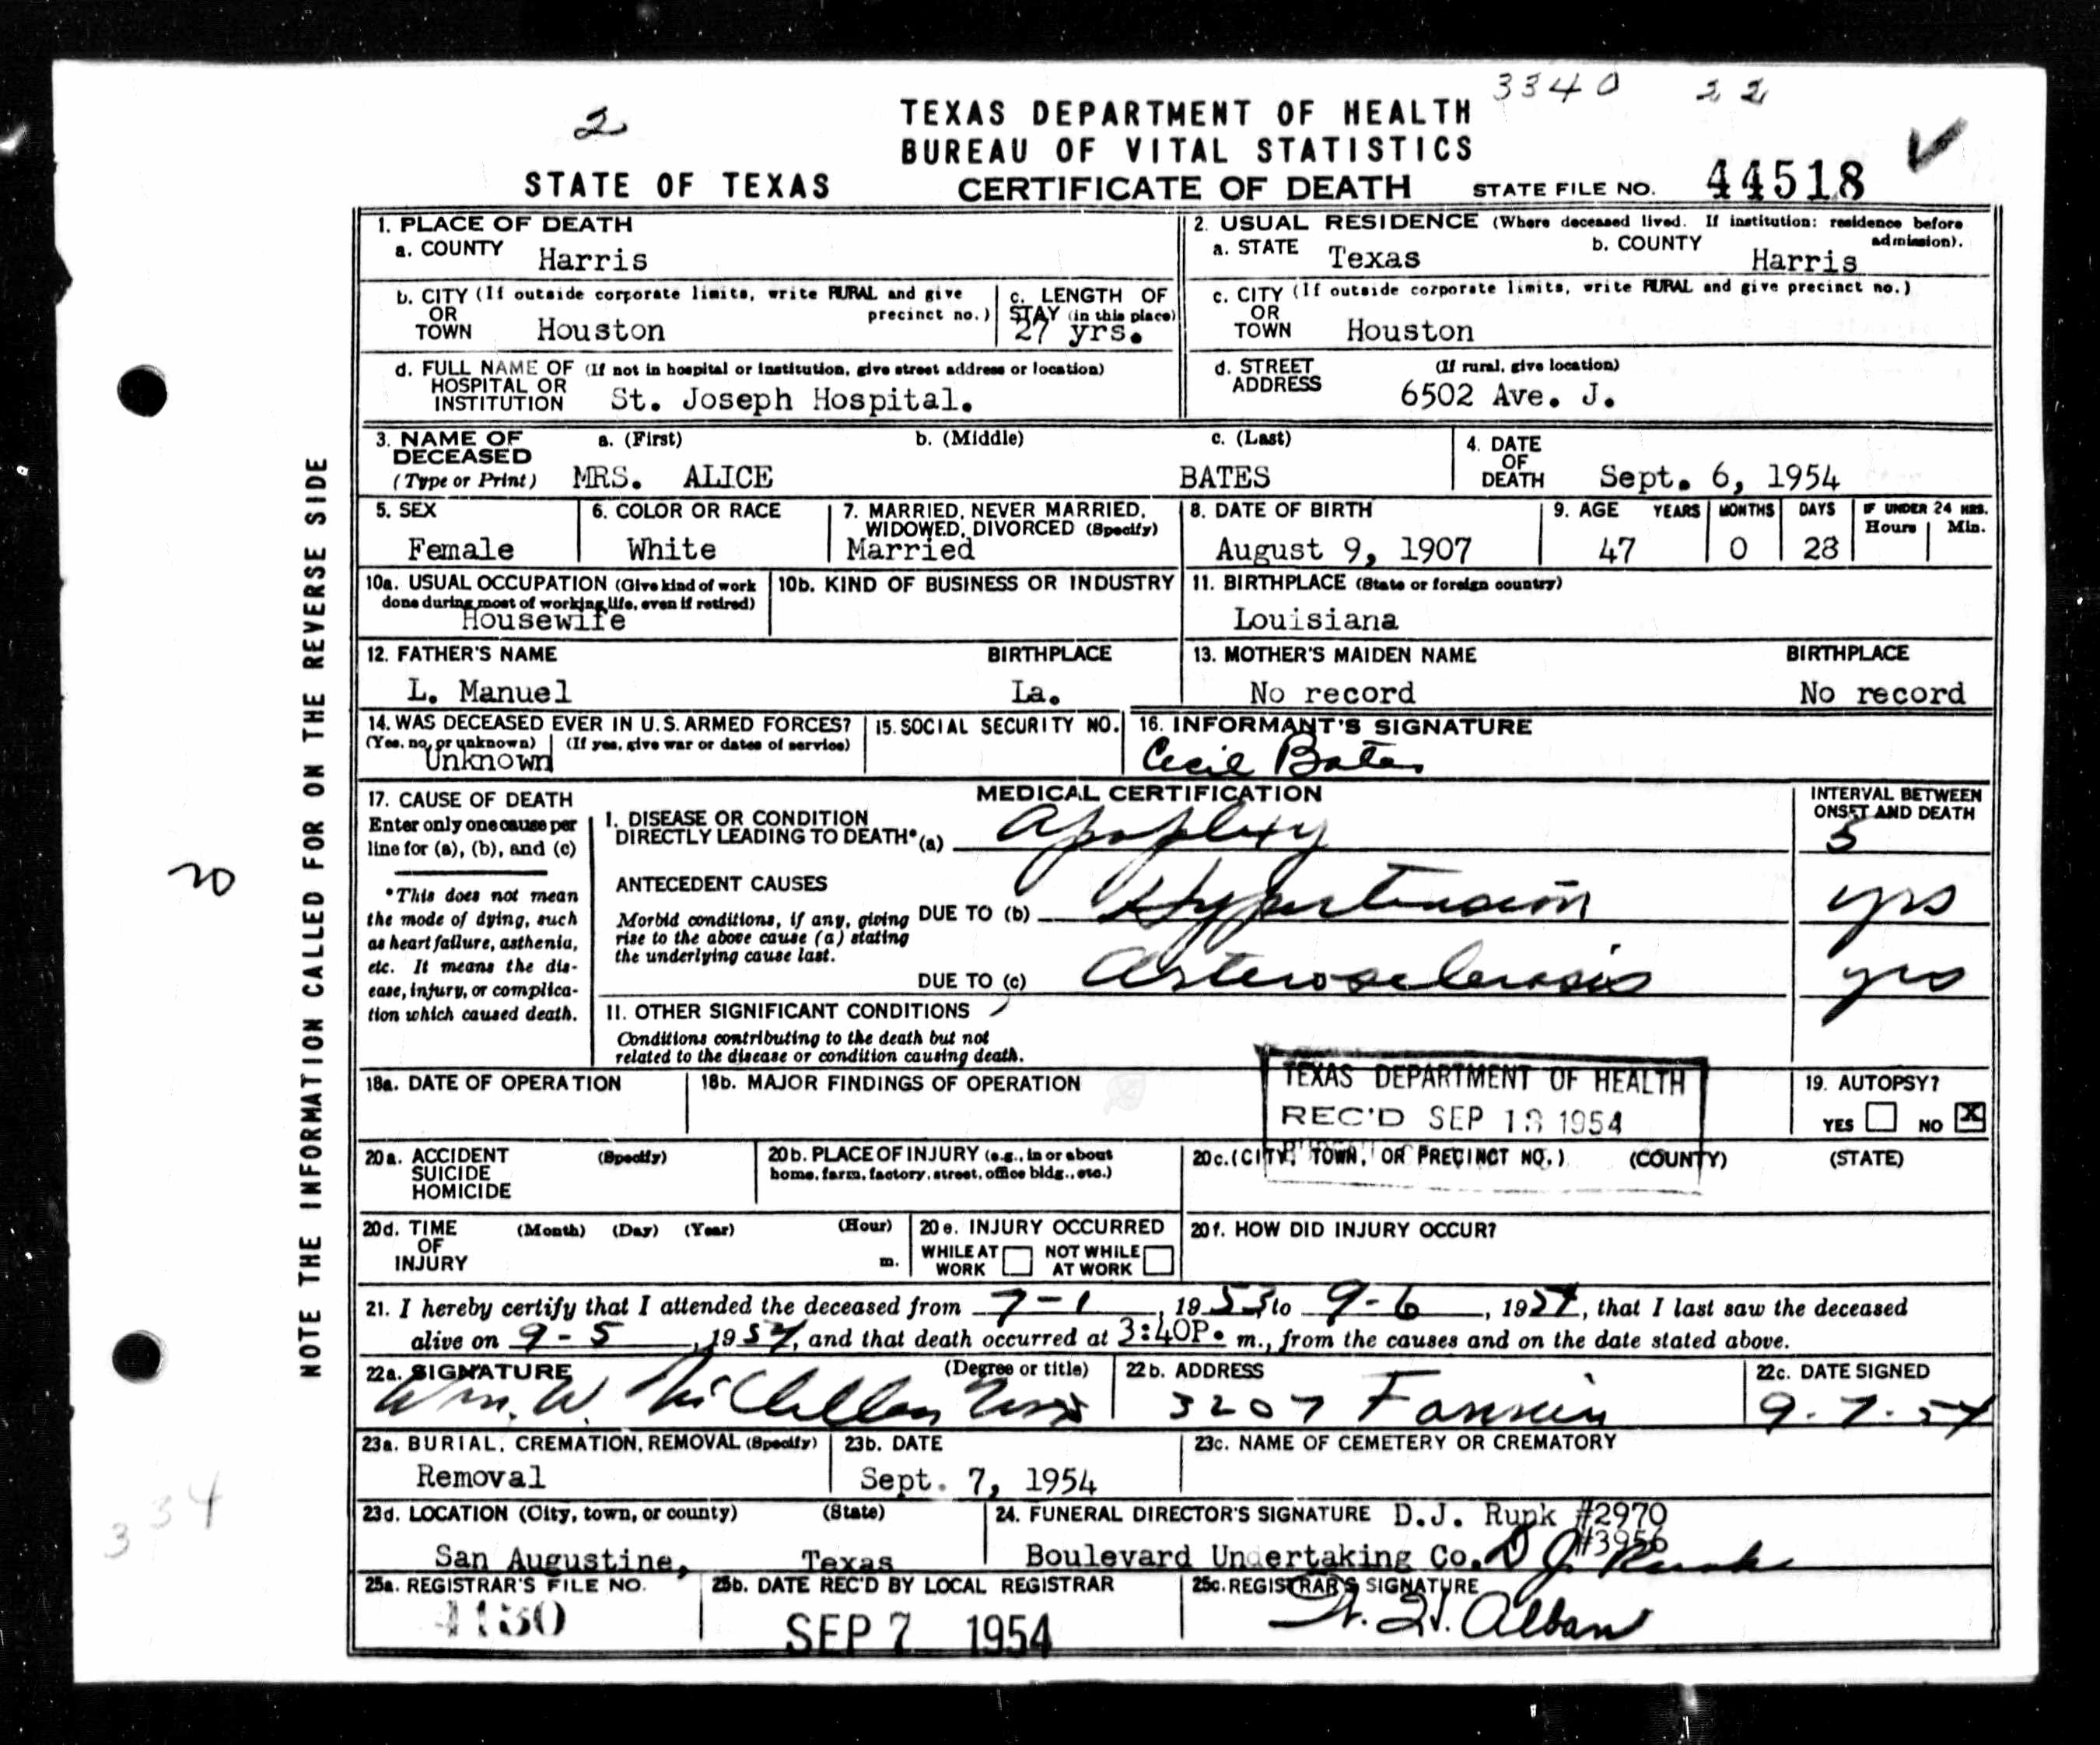 3340 22
2
TEXAS DEPARTMENT OF HEALTH
BUREAU OF VITAL STATISTICS
STATE OF TEXAS CERTIFICATE OF DEATH STATE FILE NO. 44518
1. PLACE OF DEATH
a. COUNTY Harris
2. USUAL RESIDENCE (Where deceased lived. If institution: residence before admission).
a. STATE Texas b. COUNTY Harris
b. CITY (If outside corporate limits, write RURAL and give precinct no.)
OR
TOWN Houston
c. LENGTH OF
STAY (in this place)
27 yrs.
c. CITY (If outside corporate limits, write RURAL and give precinct no.)
OR
TOWN Houston
d. FULL NAME OF (If not in hospital or institution, give street address or location)
HOSPITAL OR
INSTITUTION St. Joseph Hospital.
d. STREET (If rural, give location)
ADDRESS 6502 Ave. J.
3. NAME OF a. (First) b. (Middle) c. (Last)
DECEASED
(Type or Print) MRS. ALICE BATES
4. DATE
OF
DEATH Sept. 6, 1954
5. SEX
Female
6. COLOR OR RACE
White
7. MARRIED, NEVER MARRIED,
WIDOWED, DIVORCED (Specify)
Married
8. DATE OF BIRTH
August 9, 1907
9. AGE YEARS MONTHS DAYS IF UNDER 24 HRS.
Hours Min.
47 0 28
10a. USUAL OCCUPATION (Give kind of work
done during most of working life, even if retired)
Housewife
10b. KIND OF BUSINESS OR INDUSTRY
11. BIRTHPLACE (State or foreign country)
Louisiana
12. FATHER'S NAME BIRTHPLACE
L. Manuel La.
13. MOTHER'S MAIDEN NAME BIRTHPLACE
No record No record
14. WAS DECEASED EVER IN U.S. ARMED FORCES?
(Yes, no, or unknown) (If yes, give war or dates of service)
Unknown
15. SOCIAL SECURITY NO.
16. INFORMANT'S SIGNATURE
Cecil Bates
17. CAUSE OF DEATH
Enter only one cause per
line for (a), (b), and (c)
*This does not mean
the mode of dying, such
as heart failure, asthenia,
etc. It means the dis-
ease, injury, or complica-
tion which caused death.
MEDICAL CERTIFICATION
INTERVAL BETWEEN
ONSET AND DEATH
I. DISEASE OR CONDITION
DIRECTLY LEADING TO DEATH* (a) Apoplexy 5
ANTECEDENT CAUSES
Morbid conditions, if any, giving
rise to the above cause (a) stating
the underlying cause last.
DUE TO (b) Hypertension yrs
DUE TO (c) Arterosclerosis yrs
II. OTHER SIGNIFICANT CONDITIONS
Conditions contributing to the death but not
related to the disease or condition causing death.
18a. DATE OF OPERATION
18b. MAJOR FINDINGS OF OPERATION
TEXAS DEPARTMENT OF HEALTH
REC'D SEP 13 1954
19. AUTOPSY?
YES NO X
20a. ACCIDENT (Specify)
SUICIDE
HOMICIDE
20b. PLACE OF INJURY (e.g., in or about
home, farm, factory, street, office bldg., etc.)
20c. (CITY, TOWN, OR PRECINCT NO.) (COUNTY) (STATE)
20d. TIME (Month) (Day) (Year) (Hour)
OF
INJURY m.
20e. INJURY OCCURRED
WHILE AT WORK NOT WHILE AT WORK
20f. HOW DID INJURY OCCUR?
21. I hereby certify that I attended the deceased from 7-1, 1953 to 9-6, 1954, that I last saw the deceased
alive on 9-5, 1954, and that death occurred at 3:40P. m., from the causes and on the date stated above.
22a. SIGNATURE (Degree or title)
Wm. W. McClellan
22b. ADDRESS
3207 Fannin
22c. DATE SIGNED
9-7-54
23a. BURIAL, CREMATION, REMOVAL (Specify)
Removal
23b. DATE
Sept. 7, 1954
23c. NAME OF CEMETERY OR CREMATORY
23d. LOCATION (City, town, or county) (State)
San Augustine, Texas
24. FUNERAL DIRECTOR'S SIGNATURE D.J. Runk #2970
#3956
Boulevard Undertaking Co. D J Runk
25a. REGISTRAR'S FILE NO.
4130
25b. DATE REC'D BY LOCAL REGISTRAR
SEP 7 1954
25c. REGISTRAR'S SIGNATURE
Alban
NOTE THE INFORMATION CALLED FOR ON THE REVERSE SIDE
20
334